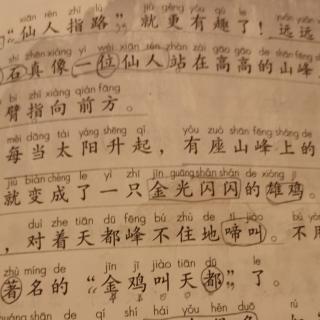 “仙人指路”就更有趣了！远远
shí zhēn xiàng yí wèi xiān rén zhàn zài gāo gāo de shān fēng
石真像一位仙人站在高高的山峰
bì zhǐ xiàng qián fāng
臂指向前方。
měi dāng tài yáng shēng qǐ yǒu zuò shān fēng shàng de
每当太阳升起，有座山峰上的
jiù biàn chéng le yì zhī jīn guāng shǎn shǎn de xióng jī
就变成了一只金光闪闪的雄鸡。
duì zhe tiān dū fēng bú zhù de tí jiào
，对着天都峰不住地啼叫。不用
zhù míng de jīn jī jiào tiān dū le
著名的“金鸡叫天都”了。